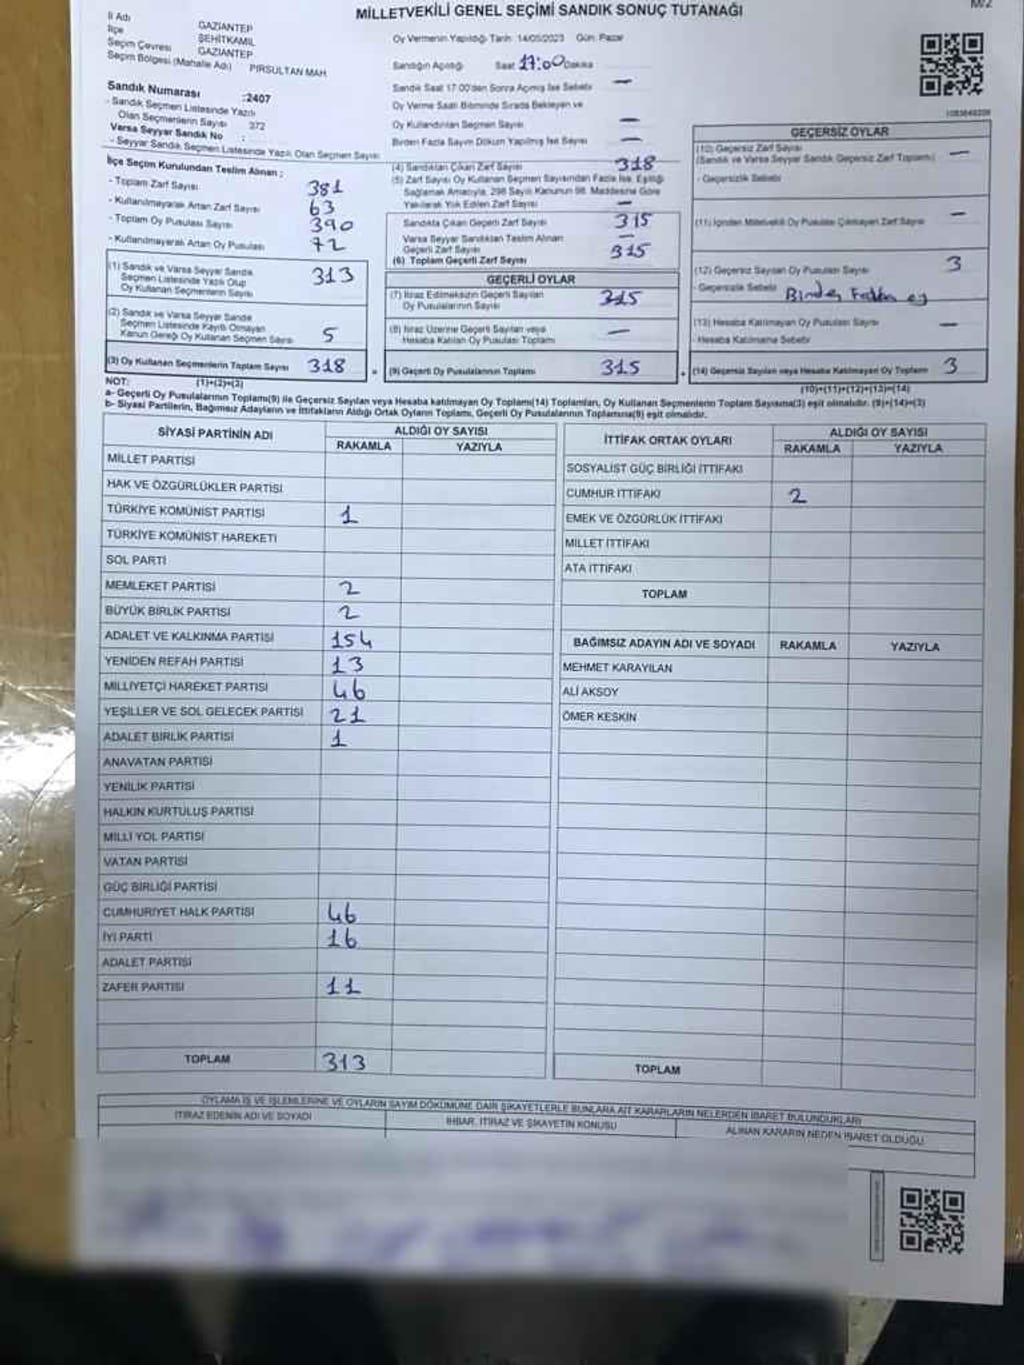 M/2
MİLLETVEKİLİ GENEL SEÇİMİ SANDIK SONUÇ TUTANAĞI
İl Adı GAZİANTEP
İlçe ŞEHİTKAMİL
Seçim Çevresi GAZİANTEP
Seçim Bölgesi (Mahalle Adı) PIRSULTAN MAH
Sandık Numarası :2407
- Sandık Seçmen Listesinde Yazılı
Olan Seçmenlerin Sayısı 372
Varsa Seyyar Sandık No :
- Seyyar Sandık Seçmen Listesinde Yazılı Olan Seçmen Sayısı
Oy Vermenin Yapıldığı Tarih: 14/05/2023 Gün: Pazar
Sandığın Açıldığı Saat 17:00 Dakika
Sandık Saat 17:00'den Sonra Açılmış İse Sebebi —
Oy Verme Saati Bitiminde Sırada Bekleyen ve
Oy Kullandırılan Seçmen Sayısı —
Birden Fazla Sayım Döküm Yapılmış İse Sayısı —
İlçe Seçim Kurulundan Teslim Alınan ;
- Toplam Zarf Sayısı 381
- Kullanılmayarak Artan Zarf Sayısı 63
- Toplam Oy Pusulası Sayısı 390
- Kullanılmayarak Artan Oy Pusulası 72
(1) Sandık ve Varsa Seyyar Sandık
Seçmen Listesinde Yazılı Olup
Oy Kullanan Seçmenlerin Sayısı 313
(2) Sandık ve Varsa Seyyar Sandık
Seçmen Listesinde Kayıtlı Olmayan
Kanun Gereği Oy Kullanan Seçmen Sayısı 5
(3) Oy Kullanan Seçmenlerin Toplam Sayısı 318
(1)+(2)=(3)
(4) Sandıktan Çıkan Zarf Sayısı 318
(5) Zarf Sayısı Oy Kullanan Seçmen Sayısından Fazla İse, Eşitliği
Sağlamak Amacıyla, 298 Sayılı Kanunun 98. Maddesine Göre
Yakılarak Yok Edilen Zarf Sayısı —
Sandıkta Çıkan Geçerli Zarf Sayısı 315
Varsa Seyyar Sandıktan Teslim Alınan
Geçerli Zarf Sayısı —
(6) Toplam Geçerli Zarf Sayısı 315
GEÇERLİ OYLAR
(7) İtiraz Edilmeksizin Geçerli Sayılan
Oy Pusulalarının Sayısı 315
(8) İtiraz Üzerine Geçerli Sayılan veya
Hesaba Katılan Oy Pusulası Toplamı —
(9) Geçerli Oy Pusulalarının Toplamı 315
GEÇERSİZ OYLAR
(10) Geçersiz Zarf Sayısı
(Sandık ve Varsa Seyyar Sandık Geçersiz Zarf Toplamı) —
- Geçersizlik Sebebi
(11) İçinden Milletvekili Oy Pusulası Çıkmayan Zarf Sayısı —
(12) Geçersiz Sayılan Oy Pusulası Sayısı 3
- Geçersizlik Sebebi Birden Fazla oy
(13) Hesaba Katılmayan Oy Pusulası Sayısı —
- Hesaba Katılmama Sebebi
(14) Geçersiz Sayılan veya Hesaba Katılmayan Oy Toplamı 3
(10)+(11)+(12)+(13)=(14)
NOT:
a- Geçerli Oy Pusulalarının Toplamı(9) ile Geçersiz Sayılan veya Hesaba Katılmayan Oy Toplamı(14) Toplamları, Oy Kullanan Seçmenlerin Toplam Sayısına(3) eşit olmalıdır. (9)+(14)=(3)
b- Siyasi Partilerin, Bağımsız Adayların ve İttifakların Aldığı Ortak Oyların Toplamı, Geçerli Oy Pusulalarının Toplamına(9) eşit olmalıdır.
SİYASİ PARTİNİN ADI ALDIĞI OY SAYISI
RAKAMLA YAZIYLA
MİLLET PARTİSİ
HAK VE ÖZGÜRLÜKLER PARTİSİ
TÜRKİYE KOMÜNİST PARTİSİ 1
TÜRKİYE KOMÜNİST HAREKETİ
SOL PARTİ
MEMLEKET PARTİSİ 2
BÜYÜK BİRLİK PARTİSİ 2
ADALET VE KALKINMA PARTİSİ 154
YENİDEN REFAH PARTİSİ 13
MİLLİYETÇİ HAREKET PARTİSİ 46
YEŞİLLER VE SOL GELECEK PARTİSİ 21
ADALET BİRLİK PARTİSİ 1
ANAVATAN PARTİSİ
YENİLİK PARTİSİ
HALKIN KURTULUŞ PARTİSİ
MİLLİ YOL PARTİSİ
VATAN PARTİSİ
GÜÇ BİRLİĞİ PARTİSİ
CUMHURİYET HALK PARTİSİ 46
İYİ PARTİ 16
ADALET PARTİSİ
ZAFER PARTİSİ 11
TOPLAM 313
İTTİFAK ORTAK OYLARI ALDIĞI OY SAYISI
RAKAMLA YAZIYLA
SOSYALİST GÜÇ BİRLİĞİ İTTİFAKI
CUMHUR İTTİFAKI 2
EMEK VE ÖZGÜRLÜK İTTİFAKI
MİLLET İTTİFAKI
ATA İTTİFAKI
TOPLAM
BAĞIMSIZ ADAYIN ADI VE SOYADI RAKAMLA YAZIYLA
MEHMET KARAYILAN
ALİ AKSOY
ÖMER KESKİN
TOPLAM
OYLAMA İŞ VE İŞLEMLERİNE VE OYLARIN SAYIM DÖKÜMÜNE DAİR ŞİKAYETLERLE BUNLARA AİT KARARLARIN NELERDEN İBARET BULUNDUKLARI
İTİRAZ EDENİN ADI VE SOYADI
İHBAR, İTİRAZ VE ŞİKAYETİN KONUSU
ALINAN KARARIN NEDEN İBARET OLDUĞU